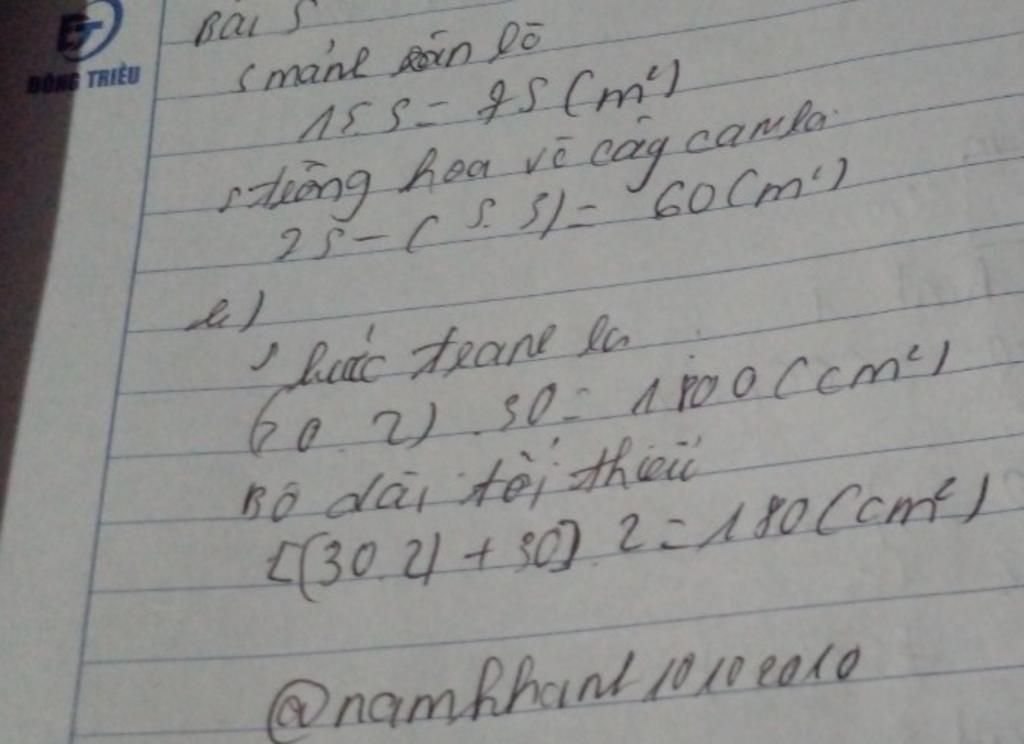 ĐÔNG TRIỀU
Bài 5
S mảnh vườn là
15.5 = 75 (m²)
S trồng hoa và cây cam là
75 - (5.3) = 60 (m²)
b)
S bức tranh là
(30.2).30 = 1800 (cm²)
Độ dài tối thiểu
[(30.2) + 30].2 = 180 (cm²)
@namkhanh10102010